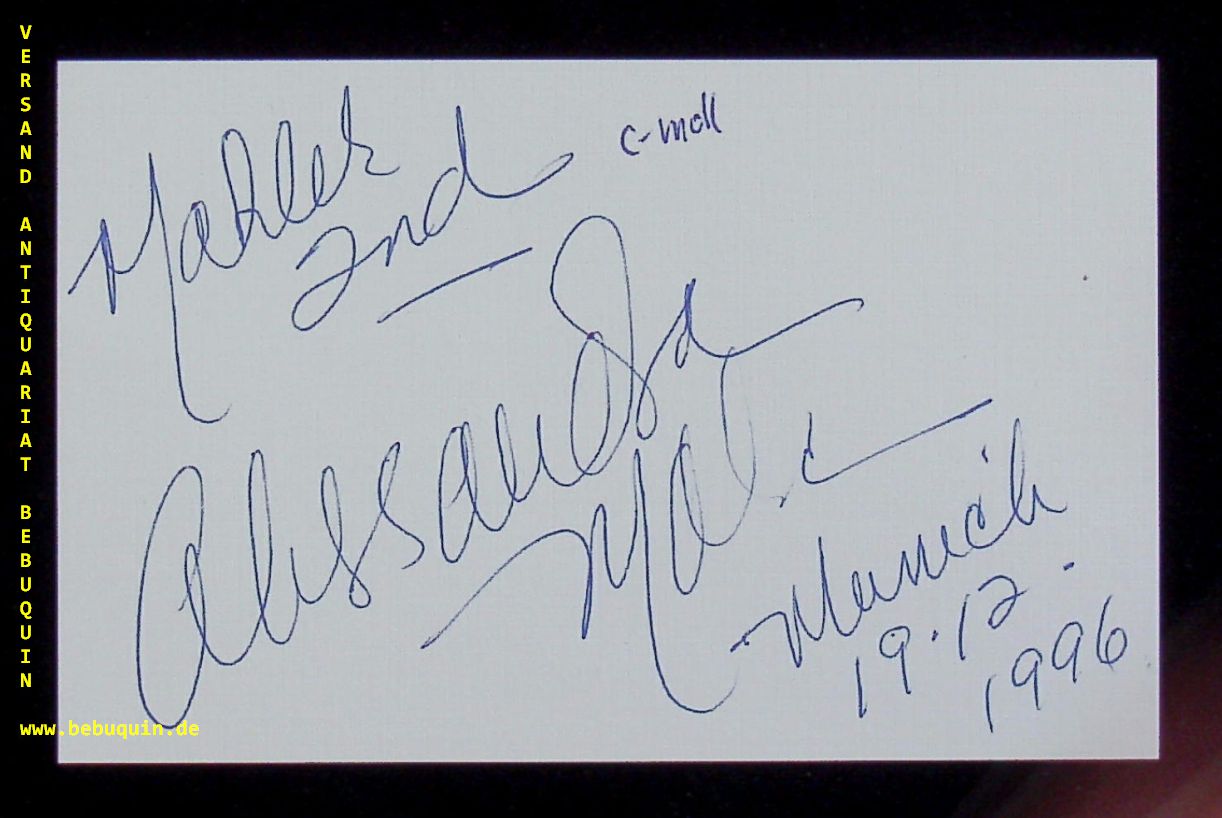 VERSAND ANTIQUARIAT BEBUQUIN
www.bebuquin.de
Mahler
2nd
c-moll
Alessandra
Marc
Munich
19.12.
1996